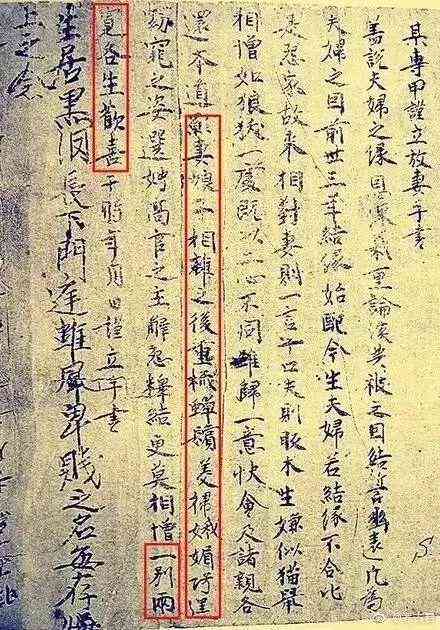 某專甲謹立放妻手書
蓋說夫婦之緣恩深義重論談共被之因結誓幽遠凡為
夫婦之因前世三年結緣始配今生夫婦若結緣不合比
是怨家故來相對妻則一言十口夫則販木生嫌似猫鼠
相憎如狼一處既以二心不同難歸一意快會及諸親各
還本道願妻娘子相離之後重梳蟬鬢美掃娥媚巧逞
窈窕之姿選娉高官之主解怨釋結更莫相憎一別兩
寬各生歡喜于時年月日謹立手書
生居黑長下逢離卑賤之名無存
上之念